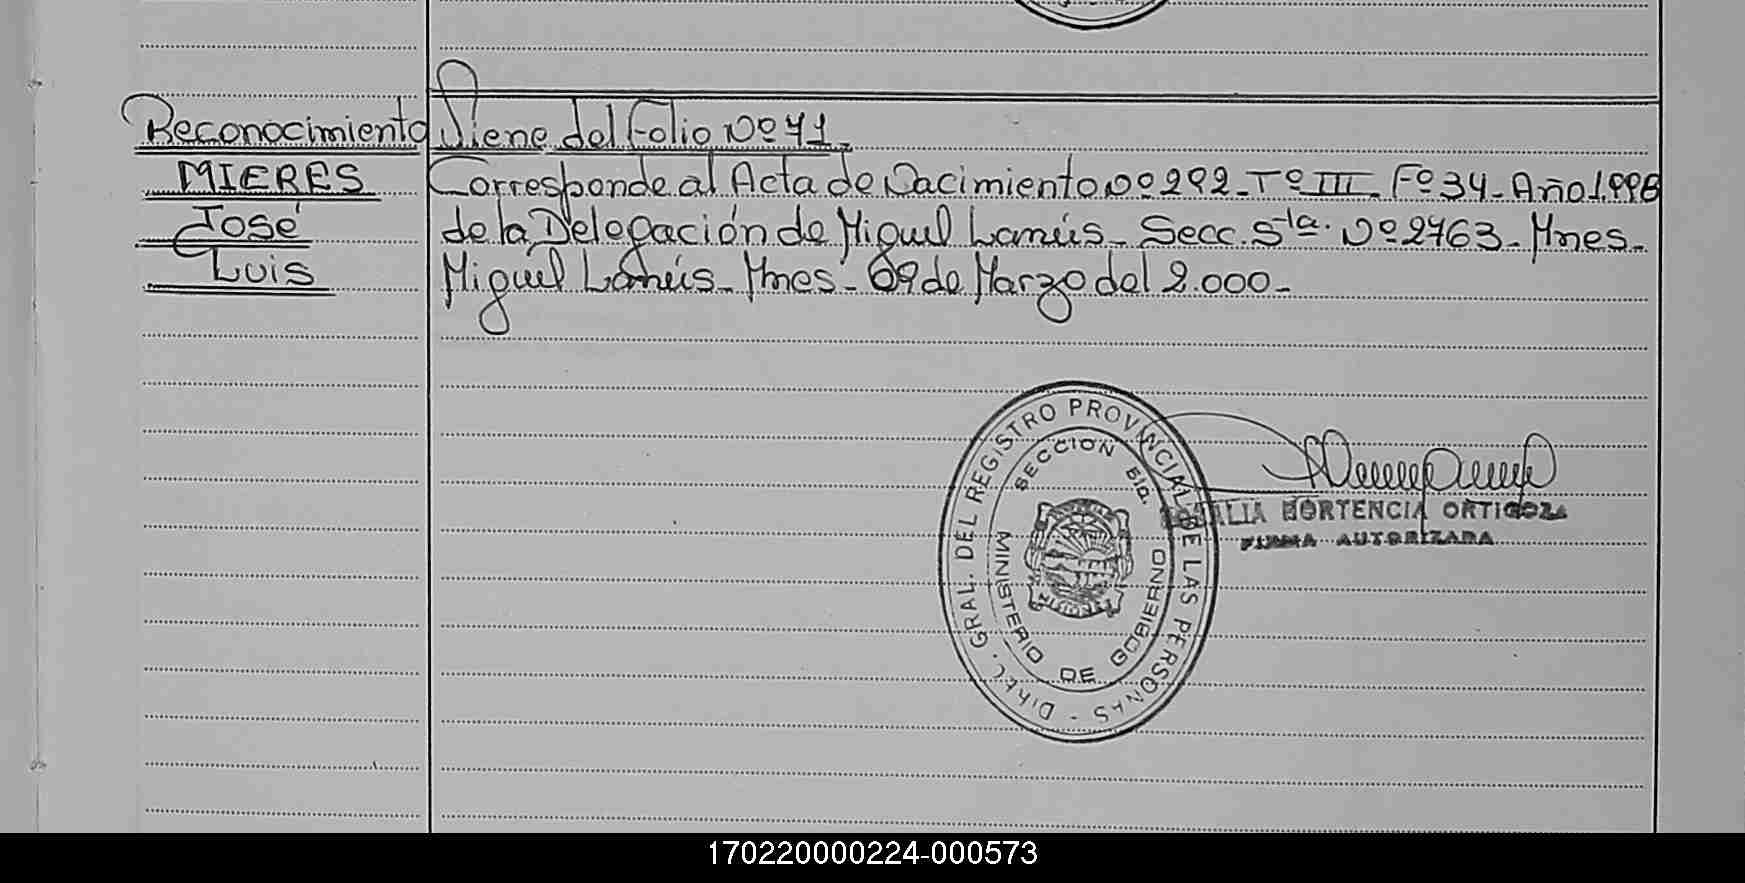 Reconocimiento
MIERES
José
Luis
Viene del Folio Nº 71.
Corresponde al Acta de Nacimiento Nº 292 - Tº III - Fº 34 - Año 1.998
de la Delegación de Miguel Lanús - Secc. 5ta. Nº 2763 - Mnes.
Miguel Lanús - Mnes - 09 de Marzo del 2.000 -
DIREC. GRAL. DEL REGISTRO PROVINCIAL DE LAS PERSONAS -
SECCION 5ta.
MINISTERIO DE GOBIERNO
HORTENCIA ORTIGOZA
FIRMA AUTORIZADA
170220000224-000573